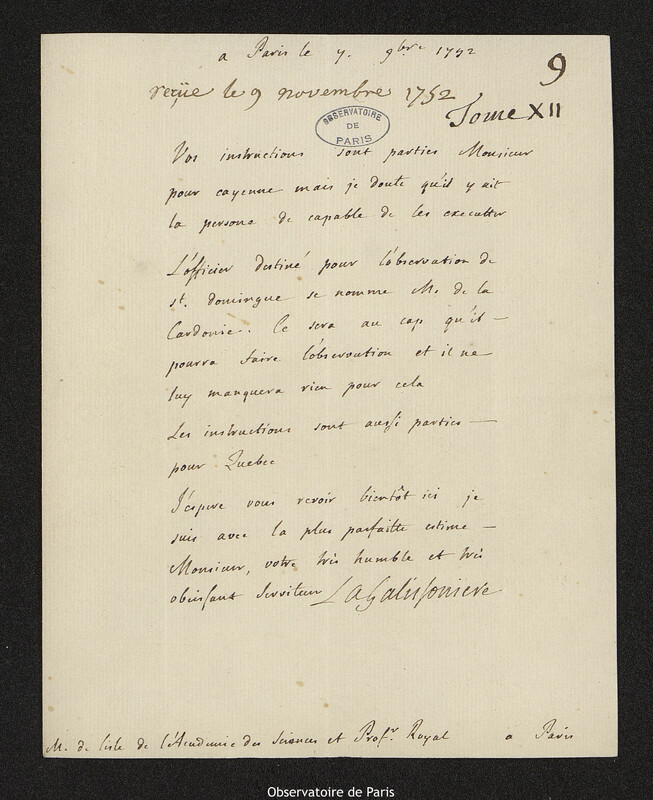 a Paris le 7. 9bre 1752
9
reçüe le 9 novembre 1752
Tome XII
OBSERVATOIRE
DE
PARIS
Vos instructions sont parties Monsieur
pour cayenne mais je doute qu'il y ait
la persone de capable de les executter
L'officier destiné pour l'observation de
st. domingue se nomme Mr. de la
Cardonie.. Ce sera au cap qu'il —
pourra faire l'observation et il ne
luy manquera rien pour cela
Les instructions sont aussi parties —
pour Quebec
J'espere vous revoir bientôt ici je
suis avec la plus parfaitte estime —
Monsieur, votre très humble et très
obeissant serviteur LaGalissoniere
M. de lisle de l'Academie des Sciences et Profr. Royal a Paris
Observatoire de Paris